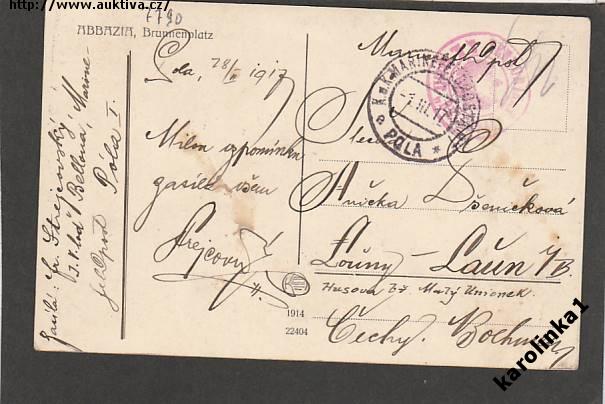 www.auktiva.cz/
6790
ABBAZIA, Brunnenplatz
Pola, 28/II 1917
Milou vzpomínku
zasílá všem
Strejcovský
Zasílá: Fr. Strejcovský
"Bellona", Marine-
feldpost Pola I.
Marinefeldpost
K.u.K. MARINEFELDPOSTAMT
1.III.17
e POLA *
Slečna
Anička Pšeničková
Louny - Laun i/B.
Husova tř. Malý Unionek
Čechy. Böhmen
1914
22404
karolinka1